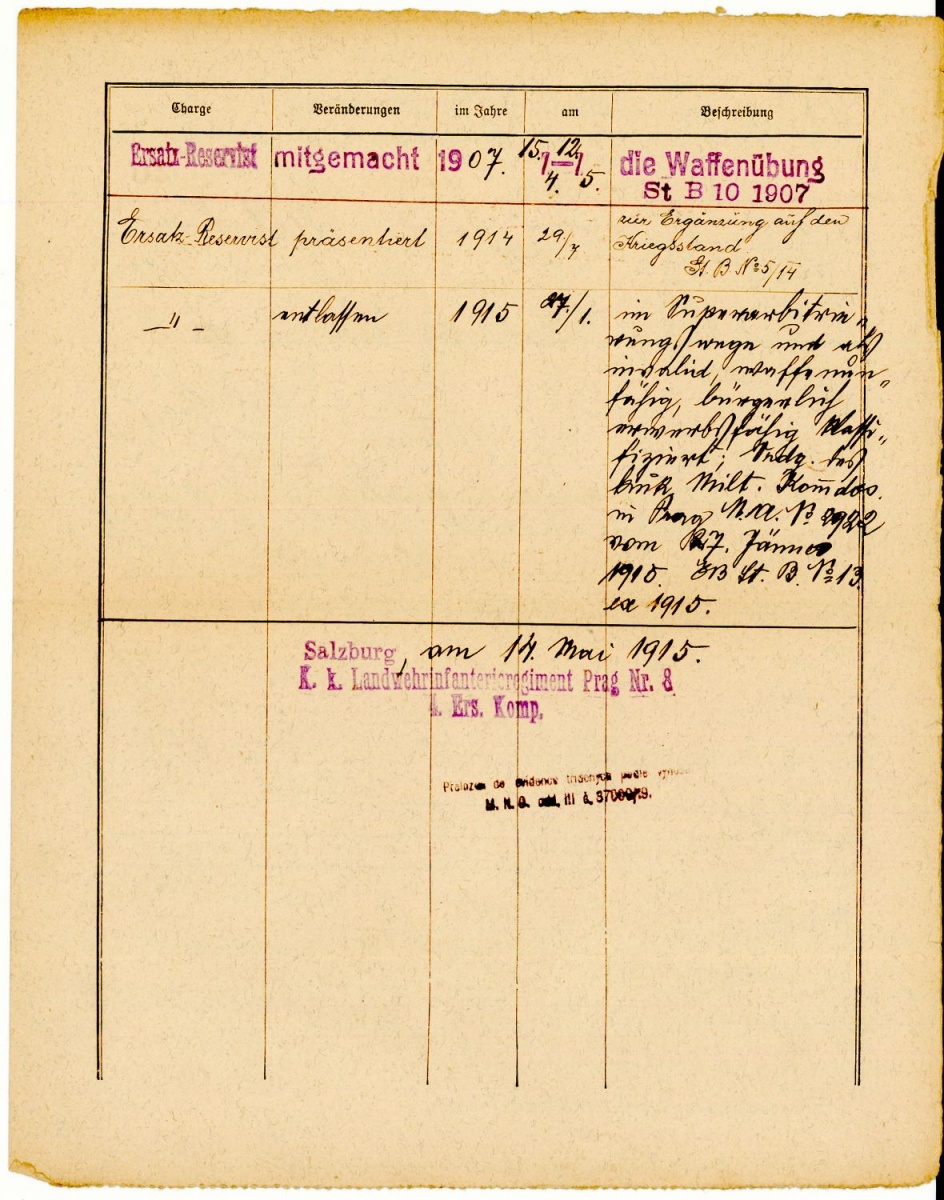 Charge Veränderungen im Jahre am Beschreibung
Ersatz-Reservist mitgemacht 1907. 15./4.–12./5. die Waffenübung
St B 10 1907
Ersatz-Reservist präsentiert 1914 29/7 zur Ergänzung auf den
Kriegsstand
St. B № 5/14
—"— entlassen 1915 27./1. im Superarbitrie„
rungswege und als
invalid, waffenun„
fähig, bürgerlich
erwerbsfähig klassi„
fiziert; des
Milt. Komdos.
in Prag M.A. №
vom 27. Jänner
1915. St. B. № 13
ex 1915.
Salzburg, am 14. Mai 1915.
K. k. Landwehrinfanterieregiment Prag Nr. 8
4. Ers. Komp.
de evidence tříděných podle
M. N. O.